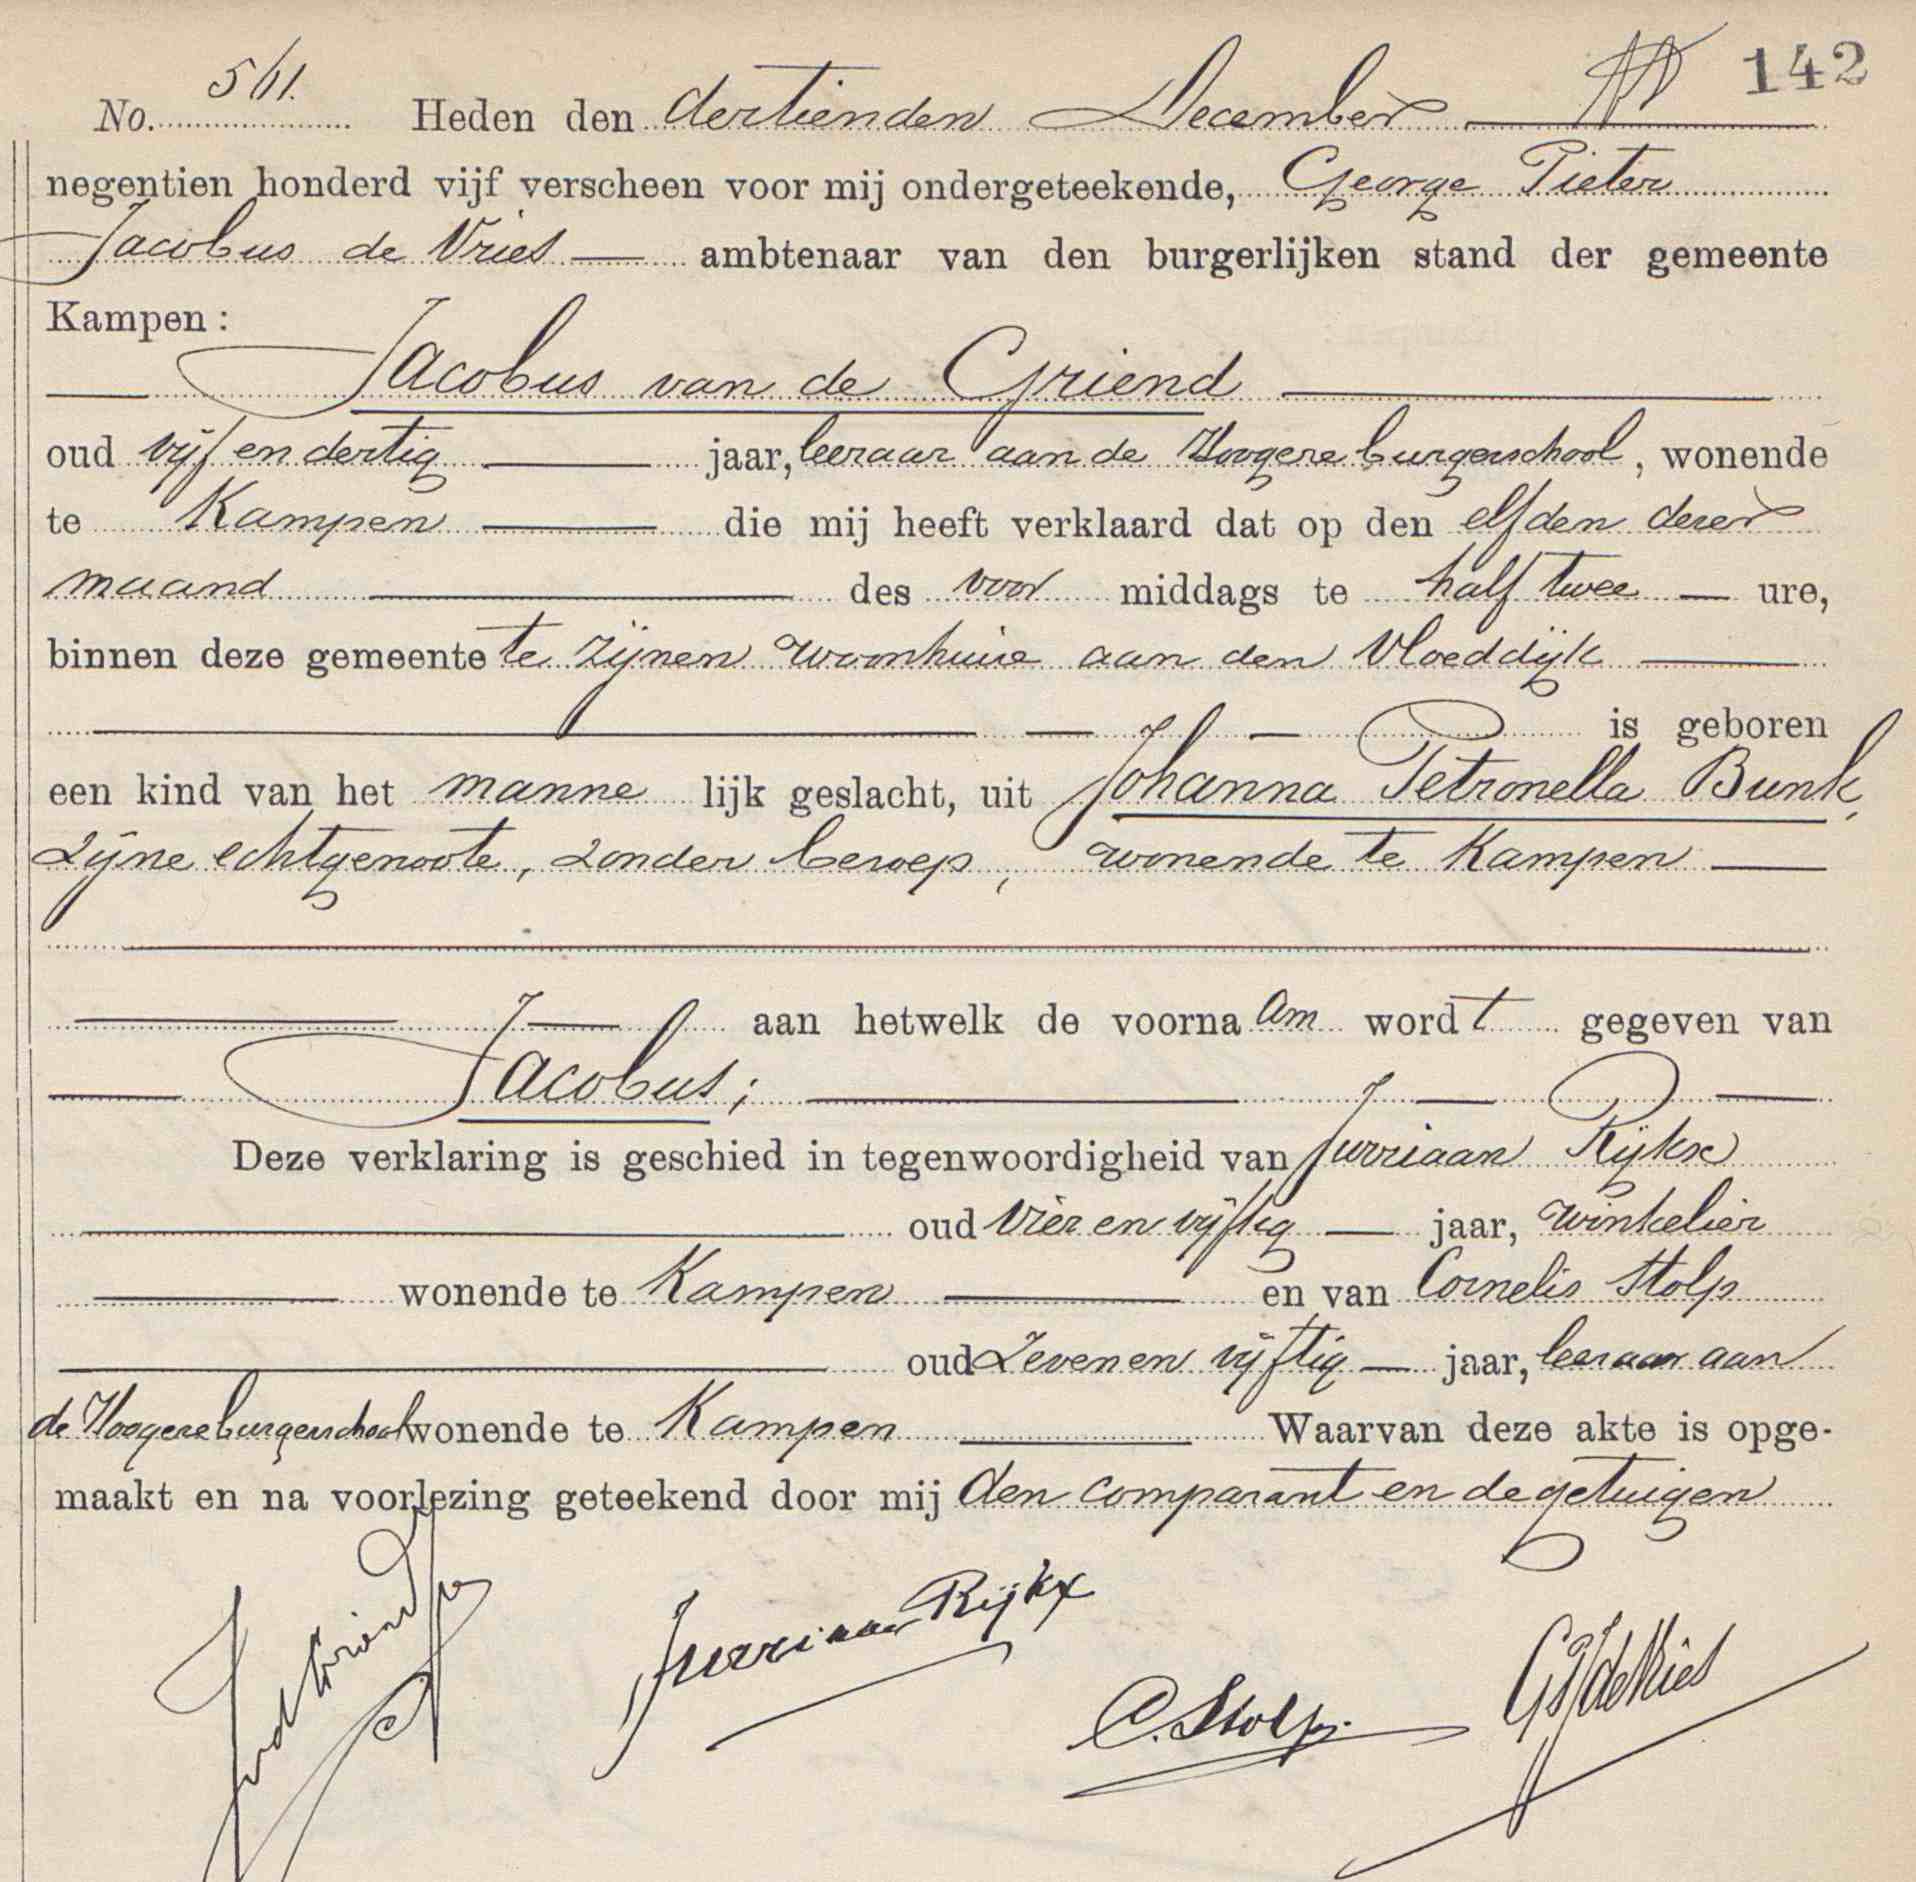 142
No. 561. Heden den dertienden December
negentien honderd vijf verscheen voor mij ondergeteekende, George Pieter
Jacobus de Vries ambtenaar van den burgerlijken stand der gemeente
Kampen:
Jacobus van de Griend
oud vijf en dertig jaar, leeraar aan de Hoogere burgerschool, wonende
te Kampen die mij heeft verklaard dat op den elfden dezer
maand des voor middags te half twee ure,
binnen deze gemeente te zijnen woonhuize aan den Vloeddijk
is geboren
een kind van het manne lijk geslacht, uit Johanna Petronella Bunk,
zijne echtgenoote, zonder beroep, wonende te Kampen
aan hetwelk de voorna am word t gegeven van
Jacobus;
Deze verklaring is geschied in tegenwoordigheid van Jurriaan Rijkx
oud vier en vijftig jaar, winkelier
wonende te Kampen en van Cornelis Stolp
oud zeven en vijftig jaar, leeraar aan
de Hoogere burgerschool wonende te Kampen Waarvan deze akte is opge-
maakt en na voorlezing geteekend door mij den comparant en de getuigen
JvdGriend Jurriaan Rijkx C. Stolp. GPJdeVries